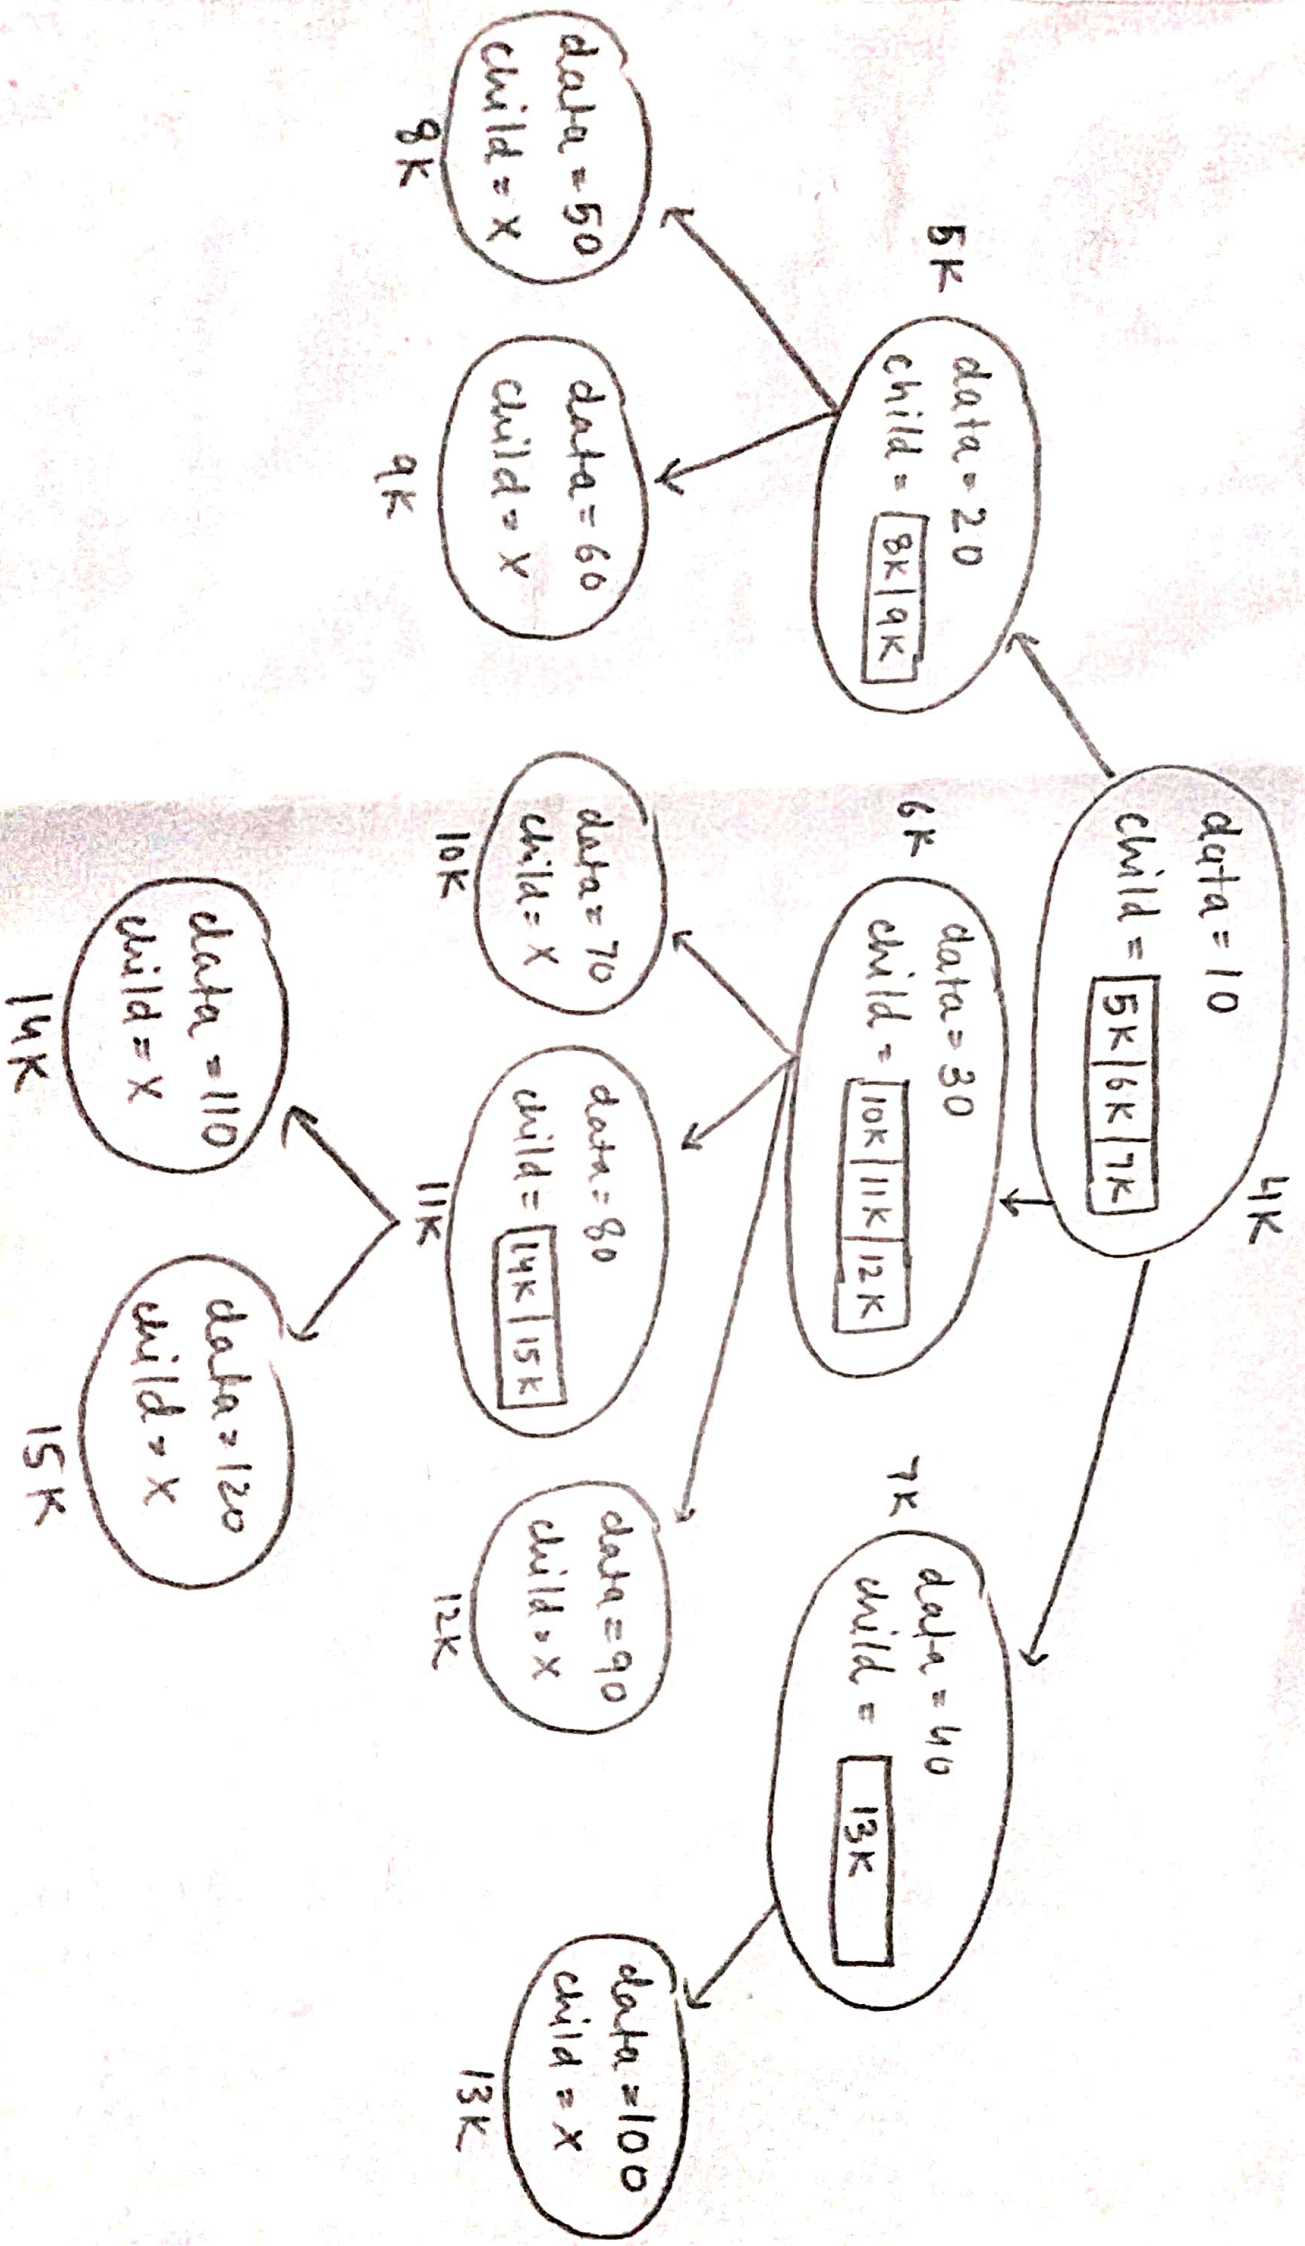 4K
data = 10
child = 5K | 6K | 7K
5K
data = 20
child = 8K | 9K
6K
data = 30
child = 10K | 11K | 12K
7K
data = 40
child = 13K
data = 50
child = X
8K
data = 60
child = X
9K
data = 70
child = X
10K
data = 80
child = 14K | 15K
11K
data = 90
child = X
12K
data = 100
child = X
13K
data = 110
child = X
14K
data = 120
child = X
15K